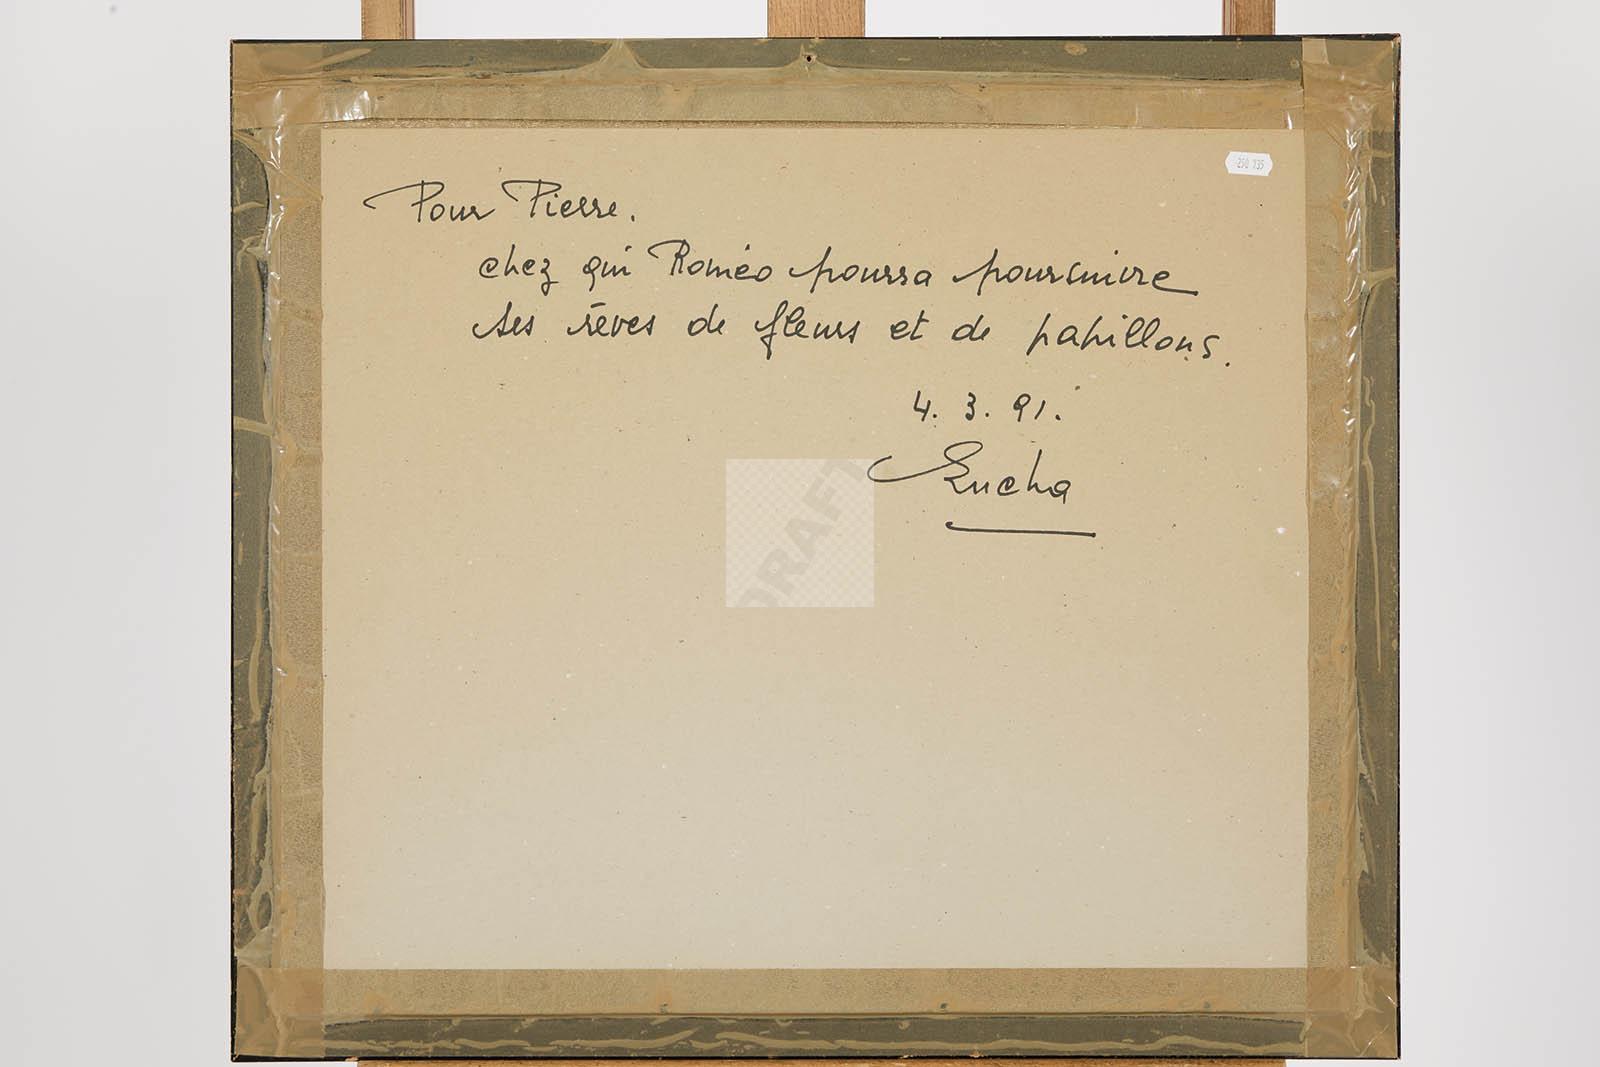 Pour Pierre.
chez qui Roméo pourra poursuivre
ses rêves de fleurs et de papillons.
4. 3. 91.
250 135
DRAFT